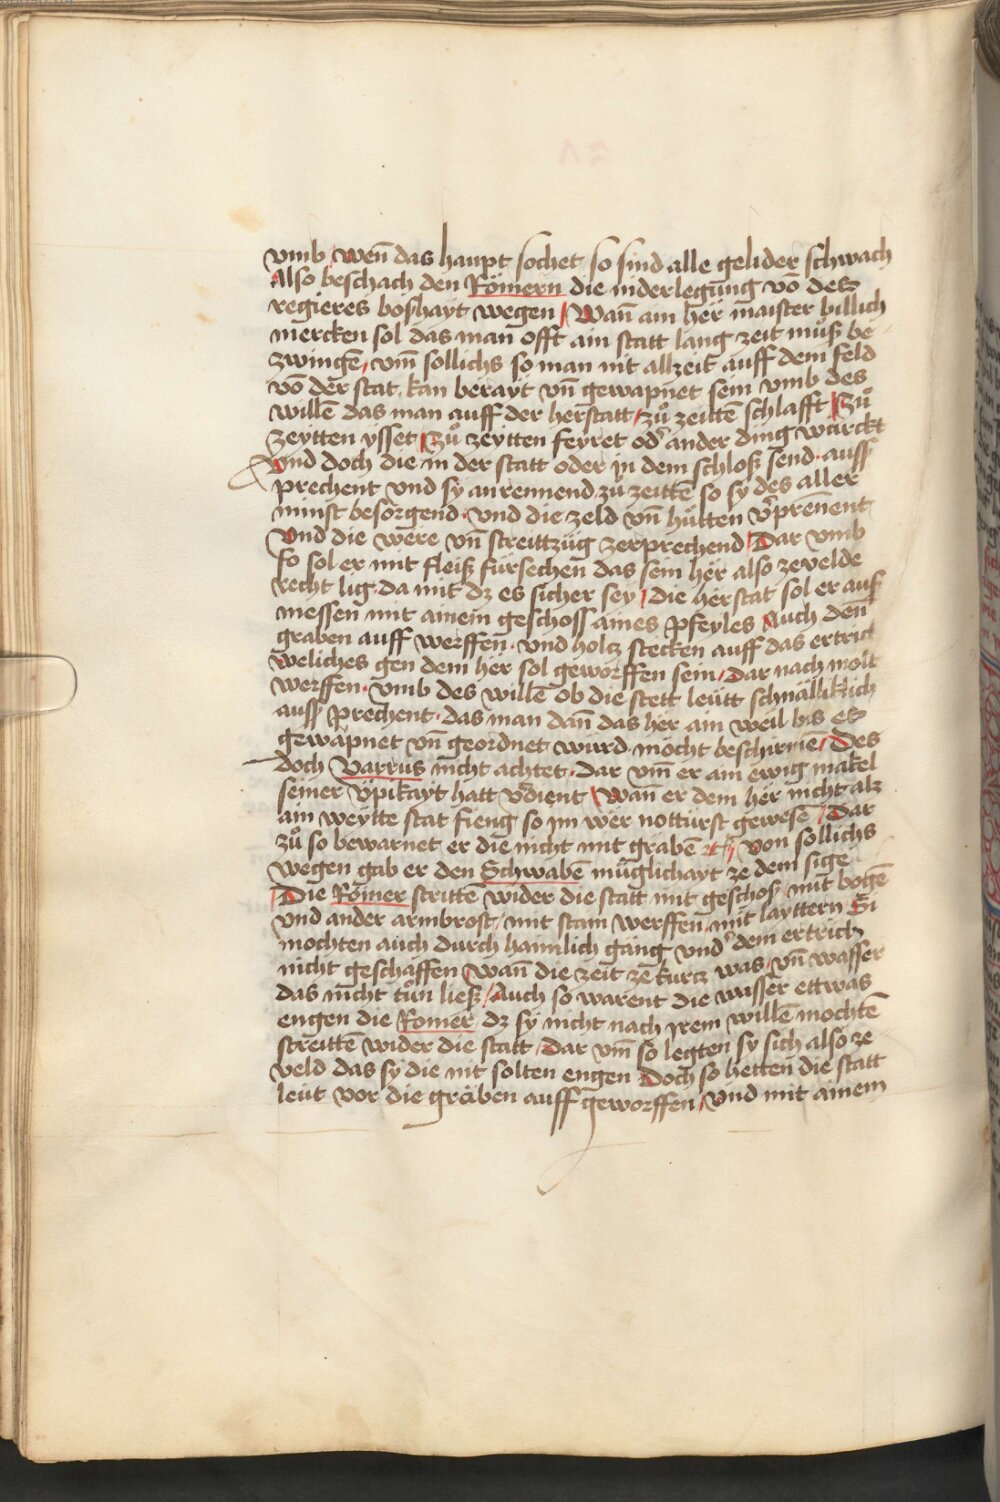 vmb / wen̄ das haupt sochet / so sind alle gelider schwach
Also beschach den Römern die niderlegūng vō des
regieres boshayt wegen / Wan̄ ain her maister billich
mercken sol das man offt ain statt lang zeit můß be
zwingē / vm̄ sollichs so man nit allzeit auff dem feld
vō der stat kan berayt vn̄ gewapnet sein vmb des
willē das man auff der herstatt / zů zeittē schlafft / Zů
zeytten ysset / Zů zeytten feyret od' ander ding würckt
Vnd doch die in der statt oder in dem schloß send · auss
prechent vnd sy anrennend zů zeittē so sy des aller
minst besorgend · vnd die zeld vn̄ hütten v'prēnent
Vnd die were vn̄ streittzüg zerprechend / Dar vmb
so sol er mit fleiß fürsechen das sein her also zevelde
recht lig · da mit dz es sicher sey / die herstat sol er auß
messen mit ainem geschoss aines pfeyles Auch den
graben auff werffen · vnd holtz stecken auff das ertrich
weliches gen dem her sol geworffen sein / Dar nach molt
werffen · vmb des willē ob die stett leütt schnälliklich
auss prechent · das man dan̄ das her ain weil bis es
gewapnet vn̄ geordnet würd · möcht beschirmē / Des
doch Varrus nicht achtet · dar vm̄ er ain ewig makel
seiner üpikayt hatt v'dient / Wan̄ er dem her nicht alz
ain weytte stat fieng so im wer notturft gewesē / Dar
zů so bewarnet er die nicht mit grabē / von sollichs
wegen gab er den Schwabē müglichayt ze dem sige
/ Die Römer strittē wider die statt mit geschoß mit bogē
vnd ander armbrost / mit stain werffen mit layttern Si
mochten auch durch haimlich gäng vnd' dem ertrich
nicht geschaffen / wan̄ die zeit zē kurcz was vn̄ wasser
das nicht tůn ließ / Auch so warent die wasser ettwas
engen die Romer dz sy nicht nach irem willē mochtē
streittē wider die statt / Dar vm̄ so legten sy sich also ze
veld das sy die nit solten engen Doch so hetten die statt
leüt vor die gräben auff geworffen / Vnd mit ainem